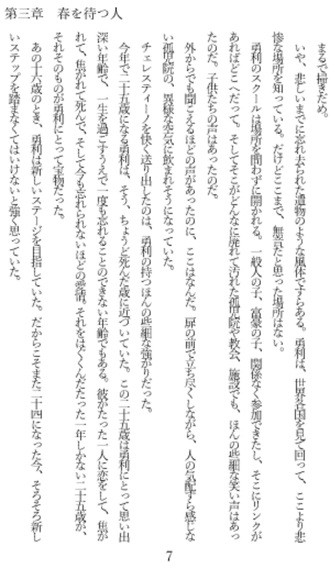 第三章　春を待つ人
まるで掃きだめ。
いや、悲しいまでに忘れ去られた遺物のような風体ですらある。勇利は、世界各国を見て回って、ここより悲
惨な場所を知っている。だけどここまで、無気だと思った場所はない。
勇利のスクールは場所を問わずに開かれる。一般人の子、富豪の子、関係なく参加できたし、そこにリンクが
あればどこへだって、そしてそこがどんなに廃れて汚れた孤児院や教会、施設でも、ほんの些細な笑い声はあっ
たのだ。子供たちの声はあったのだ。
外からでも聞こえるほどの声があったのに、ここはなんだ。扉の前で立ち尽くしながら、人の気配すら感じな
い孤児院の、異様な空気に飲まれそうになっていた。
チェレスティーノを快く送り出したのは、勇利の持つほんの些細な強がりだった。
今年で二十五歳になる勇利は、そう、ちょうど死んだ歳に近づいていた。この二十五歳は勇利にとって思い出
深い年齢で、一生を過ごすうえで一度も忘れることのできない年齢でもある。彼がたった一人に恋をして、焦が
れて、焦がれて死んで、そして今も忘れられないほどの愛情。それをはぐくんだたった一年しかない二十五歳が、
それそのものが勇利にとって宝物だった。
あの十六歳のとき、勇利は新しいステージを目指していた。だからこそまた二十四になった今、そろそろ新し
いステップを踏まなくてはいけないと強く思っていた。
7